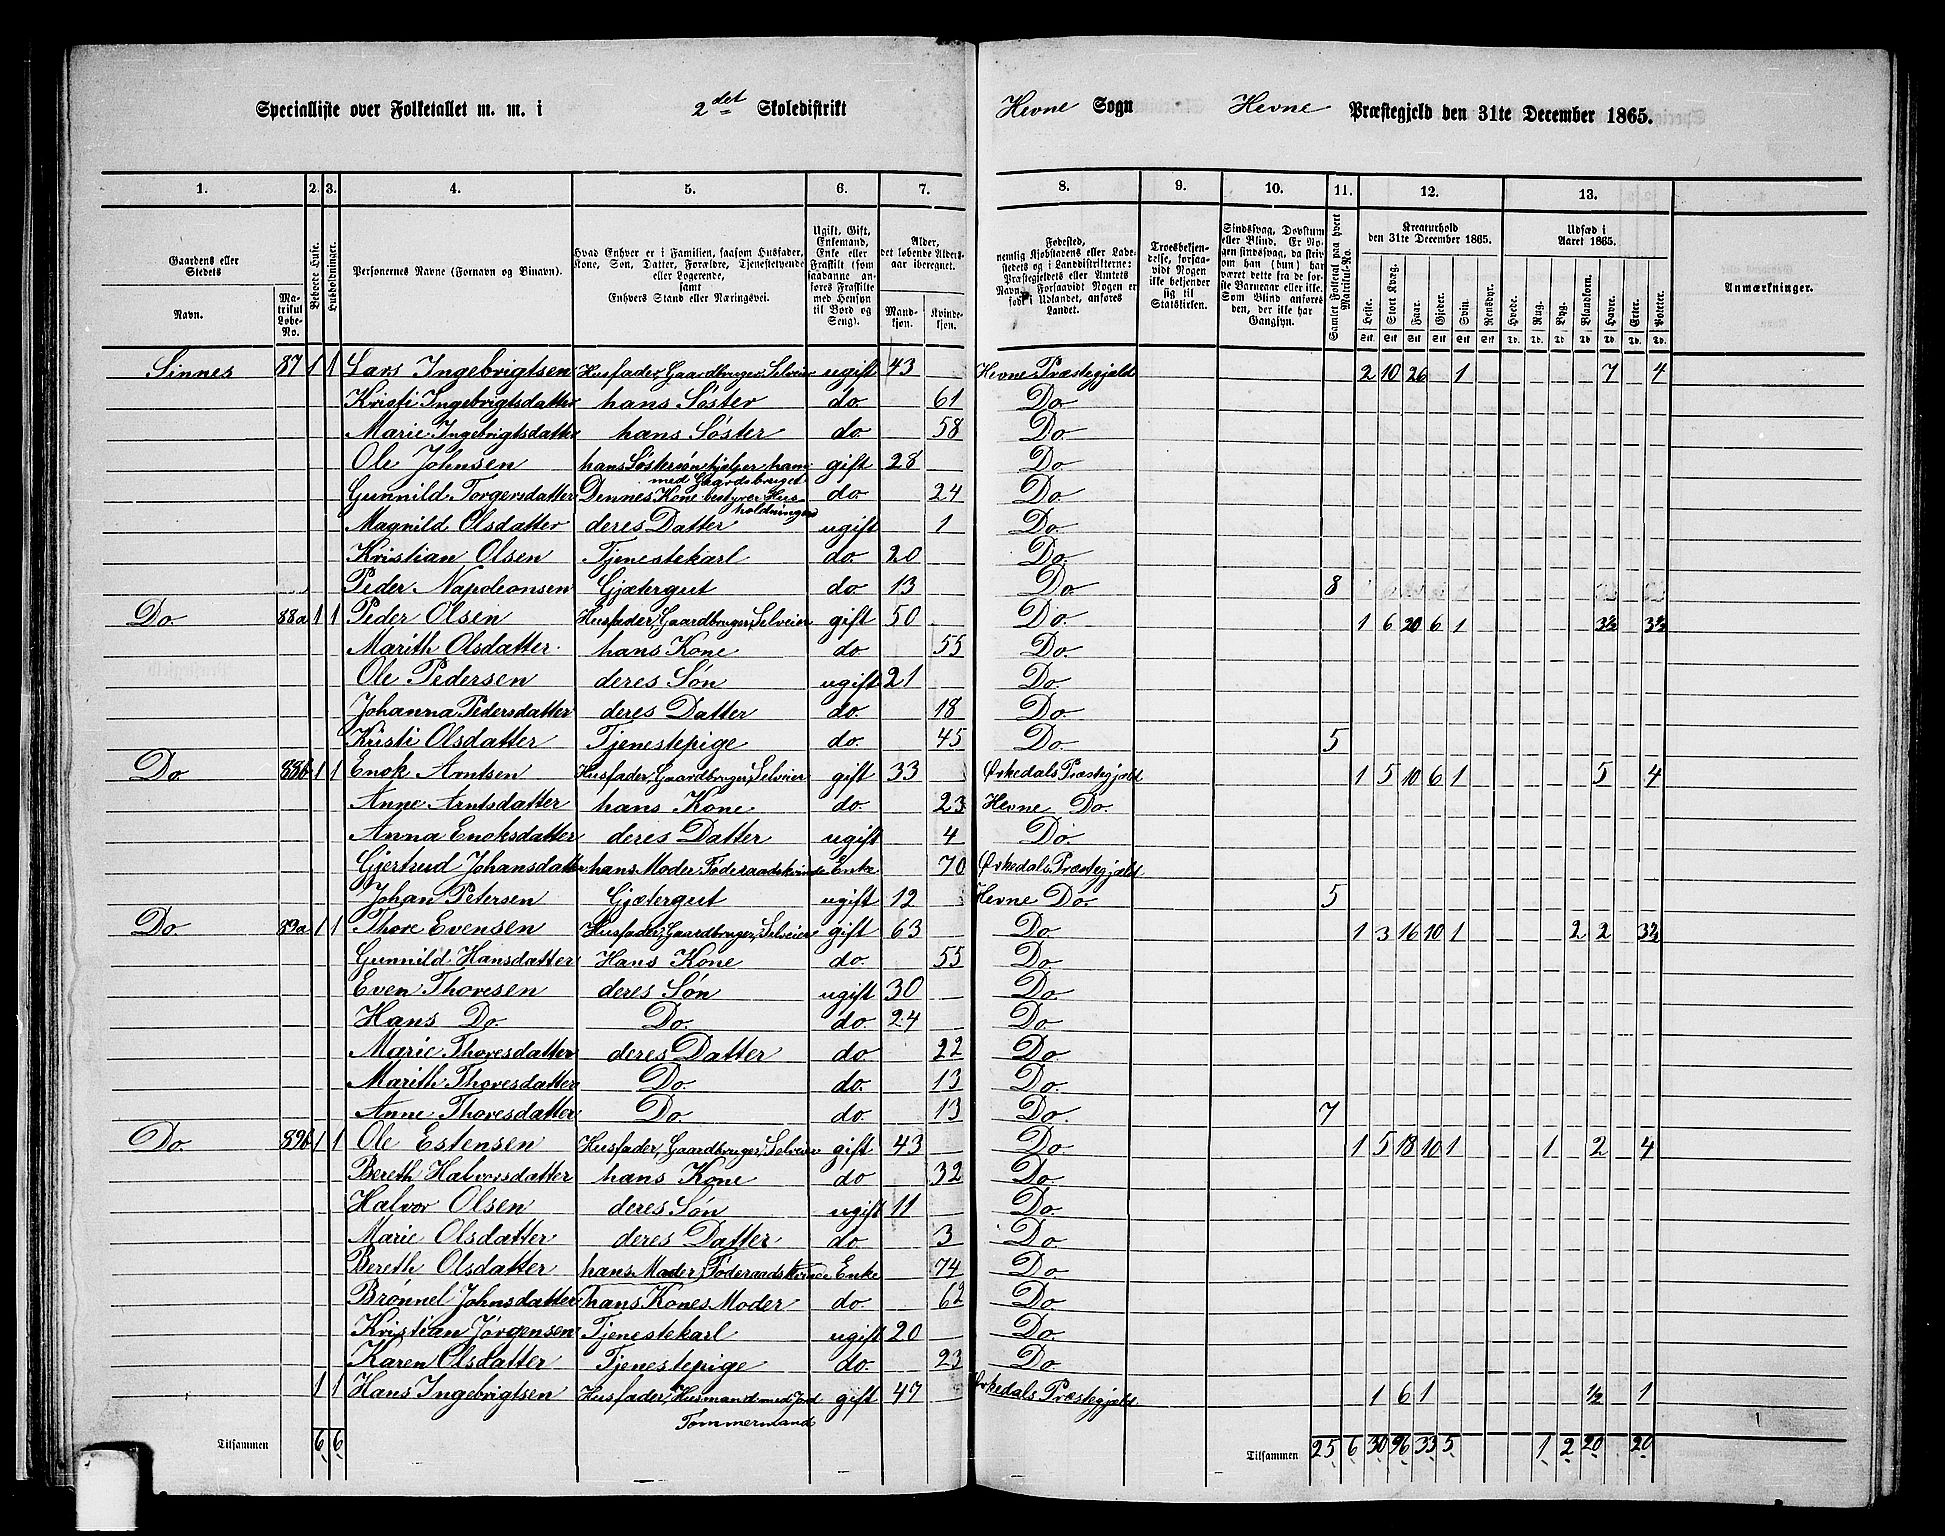 Specialliste over Folketallet m. m. i 2det Skoledistrikt Hevne Sogn Hevne Præstegjeld den 31te December 1865.
1. 2. 3. 4. 5. 6. 7. 8. 9. 10. 11. 12. 13.
Gaardens eller Stedets Navn. Matrikul Løbe-No. Beboede Huse. Husholdninger. Personernes Navne (Fornavn og Binavn). Hvad Enhver er i Familien, saasom Husfader, Kone, Søn, Datter, Forældre, Tjenestetyende eller Logerende, samt Enhvers Stand eller Næringsvei. Ugift, Gift, Enkemand, Enke eller Fraskilt (som saadanne anføres Fraskilte med Hensyn til Bord og Seng). Alder, det løbende Aldersaar iberegnet. Mandkjøn. Kvindekjøn. Fødested, nemlig Kjøbstadens eller Ladestedets og i Landdistrikterne: Præstegjeldets eller Amtets Navn. Forsaavidt Nogen er født i Udlandet, anføres Landet. Troesbekjendelse, forsaavidt Nogen ikke bekjender sig til Statskirken. Sindssvag, Døvstum eller Blind. Er Nogen sindssvag, da skrives om han (hun) har været dette fra de første Barneaar eller ikke. Som Blind anføres den, der ikke har Gangsyn. Samlet Folketal paa hvert Matrikul-No. Kreaturhold den 31te December 1865. Heste. Stort Kvæg. Faar. Gjeder. Svin. Rensdyr. Udsæd i Aaret 1865. Hvede. Rug. Byg. Blandkorn. Havre. Erter. Poteter. Anmærkninger.
Sk. Sk. Sk. Sk. Sk. Sk. Td. Td. Td. Td. Td. Td. Td.
Sinnes 87 1 1 Lars Ingebrigtsen Husfader, Gaardbruger, Selveier ugift 43 Hevne Præstegjæld 2 10 26 1 7 4
Kristi Ingebrigtsdatter hans Søster do. 61 Do.
Marie Ingebrigtsdatter hans Søster do. 58 Do.
Ole Johnsen hans Søstersøn hjelper ham med Gaardsbruget gift 28 Do.
Gunnild Torgersdatter Dennes Kone bestyrer Husholdningen do. 24 Do.
Magnild Olsdatter deres Datter ugift 1 Do.
Kristian Olsen Tjenestekarl do. 20 Do.
Peder Napoleonsen Gjætergut do. 13 Do 8
Do. 88a 1 1 Peder Olsen Husfader, Gaardbruger, Selveier gift 50 Do. 1 6 20 6 1 3½ 3½
Marith Olsdatter. hans Kone do. 55 Do.
Ole Pedersen deres Søn ugift 21 Do.
Johanna Pedersdatter deres Datter do. 18 Do.
Kristi Olsdatter Tjenestepige do. 45 Do. 5
Do 88b 1 1 Enok Arntsen Husfader, Gaardbruger, Selveier gift 33 Ørkedals Præstegjæld 1 5 10 6 1 5 4
Anne Arntsdatter hans Kone do. 23 Hevne Do.
Anna Enoksdatter deres Datter ugift 4 Do.
Gjertrud Johansdatter hans Moder Føderaadskvinde Enke 70 Ørkedals Præstegjæld
Johan Petersen Gjætergut ugift 12 Hevne Do. 5
Do 89a 1 1 Thore Evensen Husfader, Gaardbruger, Selveier gift 63 Do 1 3 16 10 1 2 2 3½
Gunnild Hansdatter Hans Kone do. 55 Do
Even Thoresen deres Søn ugift 30 Do.
Hans Do. Do. do. 24 Do
Marie Thoresdatter deres Datter do 22 Do
Marith Thoresdatter Do do. 13 Do.
Anne Thoresdatter Do. do 13 Do. 7
Do. 89b 1 1 Ole Estensen Husfader, Gaardbruger, Selveier gift 43 Do 1 5 18 10 1 1 2 4
Bereth Halvorsdatter hans Kone do 32 Do
Halvor Olsen deres Søn ugift 11 Do.
Marie Olsdatter deres Datter do. 3 Do.
Bereth Olsdatter hans Moder, Føderaadskvinde Enke 74 Do.
Brønnel Johnsdatter hans Kones Moder do. 62 Do.
Kristian Jørgensen Tjenestekarl ugift 20 Do.
Karen Olsdatter Tjenestepige do. 23 Do.
1 1 Hans Ingebrigtsen Husfader, Husmand med Jord Tømmermand gift 47 Ørkedals Præstegjæld 1 6 1 ½ 1
Tilsammen 6 6 Tilsammen 25 6 30 96 33 5 1 2 20 20